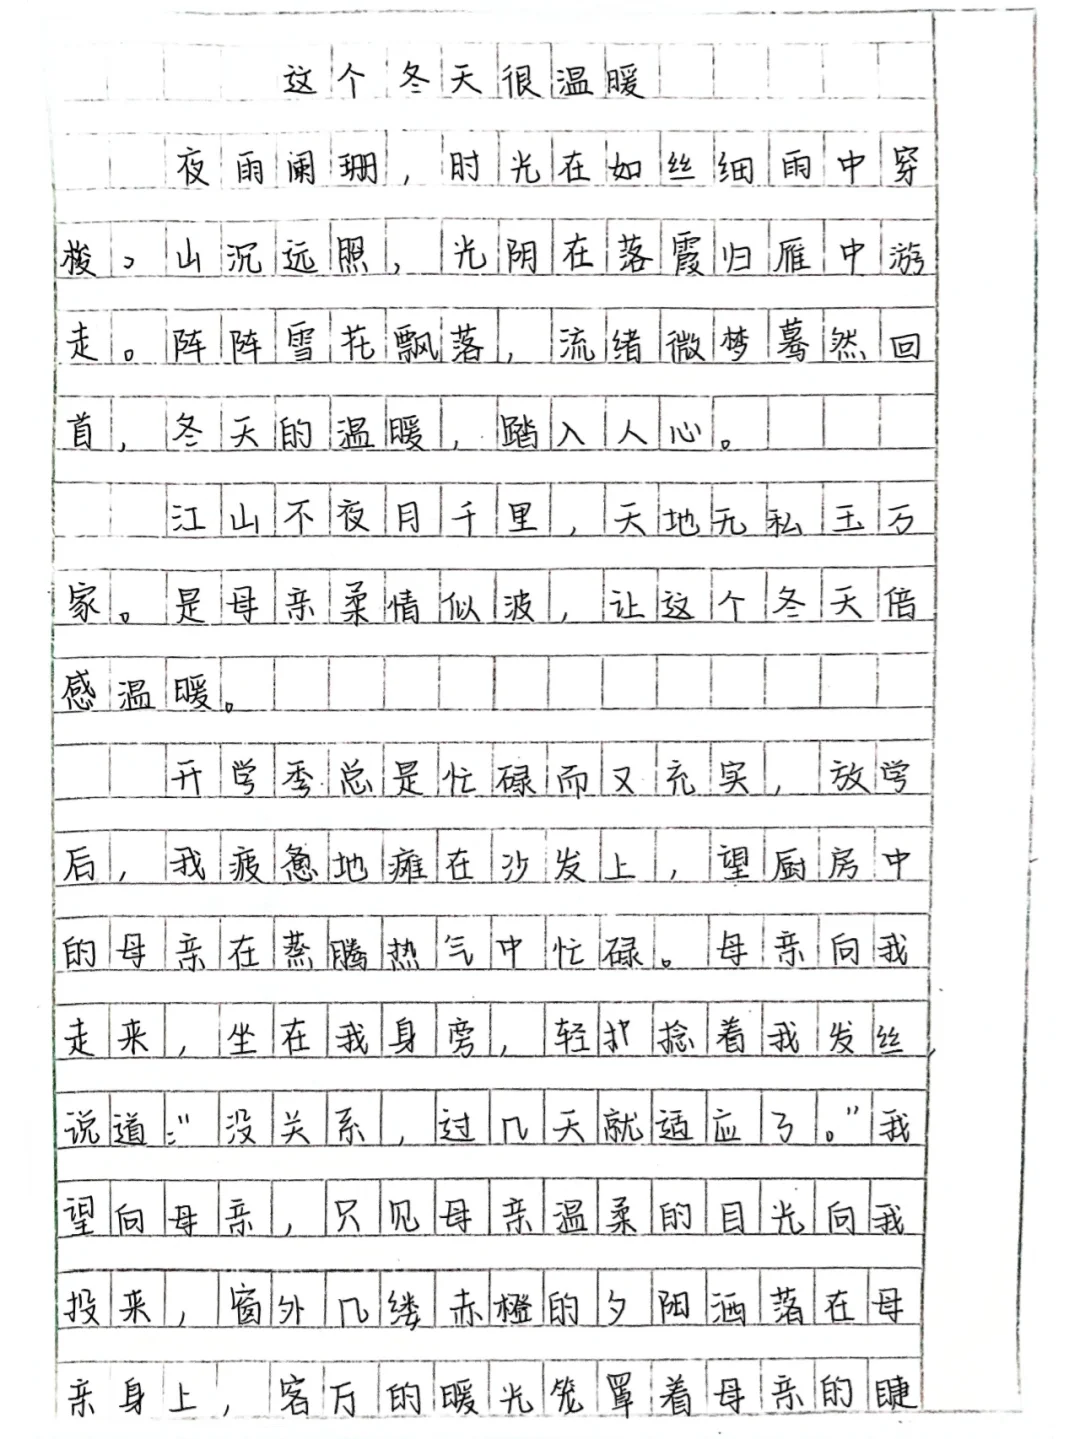 这个冬天很温暖
夜雨阑珊，时光在如丝细雨中穿
梭；山沉远照，光阴在落霞归雁中游
走。阵阵雪花飘落，流绪微梦蓦然回
首，冬天的温暖，踏入人心。
江山不夜月千里，天地无私玉万
家。是母亲柔情似波，让这个冬天倍
感温暖。
开学季总是忙碌而又充实，放学
后，我疲惫地瘫在沙发上，望厨房中
的母亲在蒸腾热气中忙碌。母亲向我
走来，坐在我身旁，轻捻着我发丝，
说道："没关系，过几天就适应了。"我
望向母亲，只见母亲温柔的目光向我
投来，窗外几缕赤橙的夕阳洒落在母
亲身上，客厅的暖光笼罩着母亲的睫